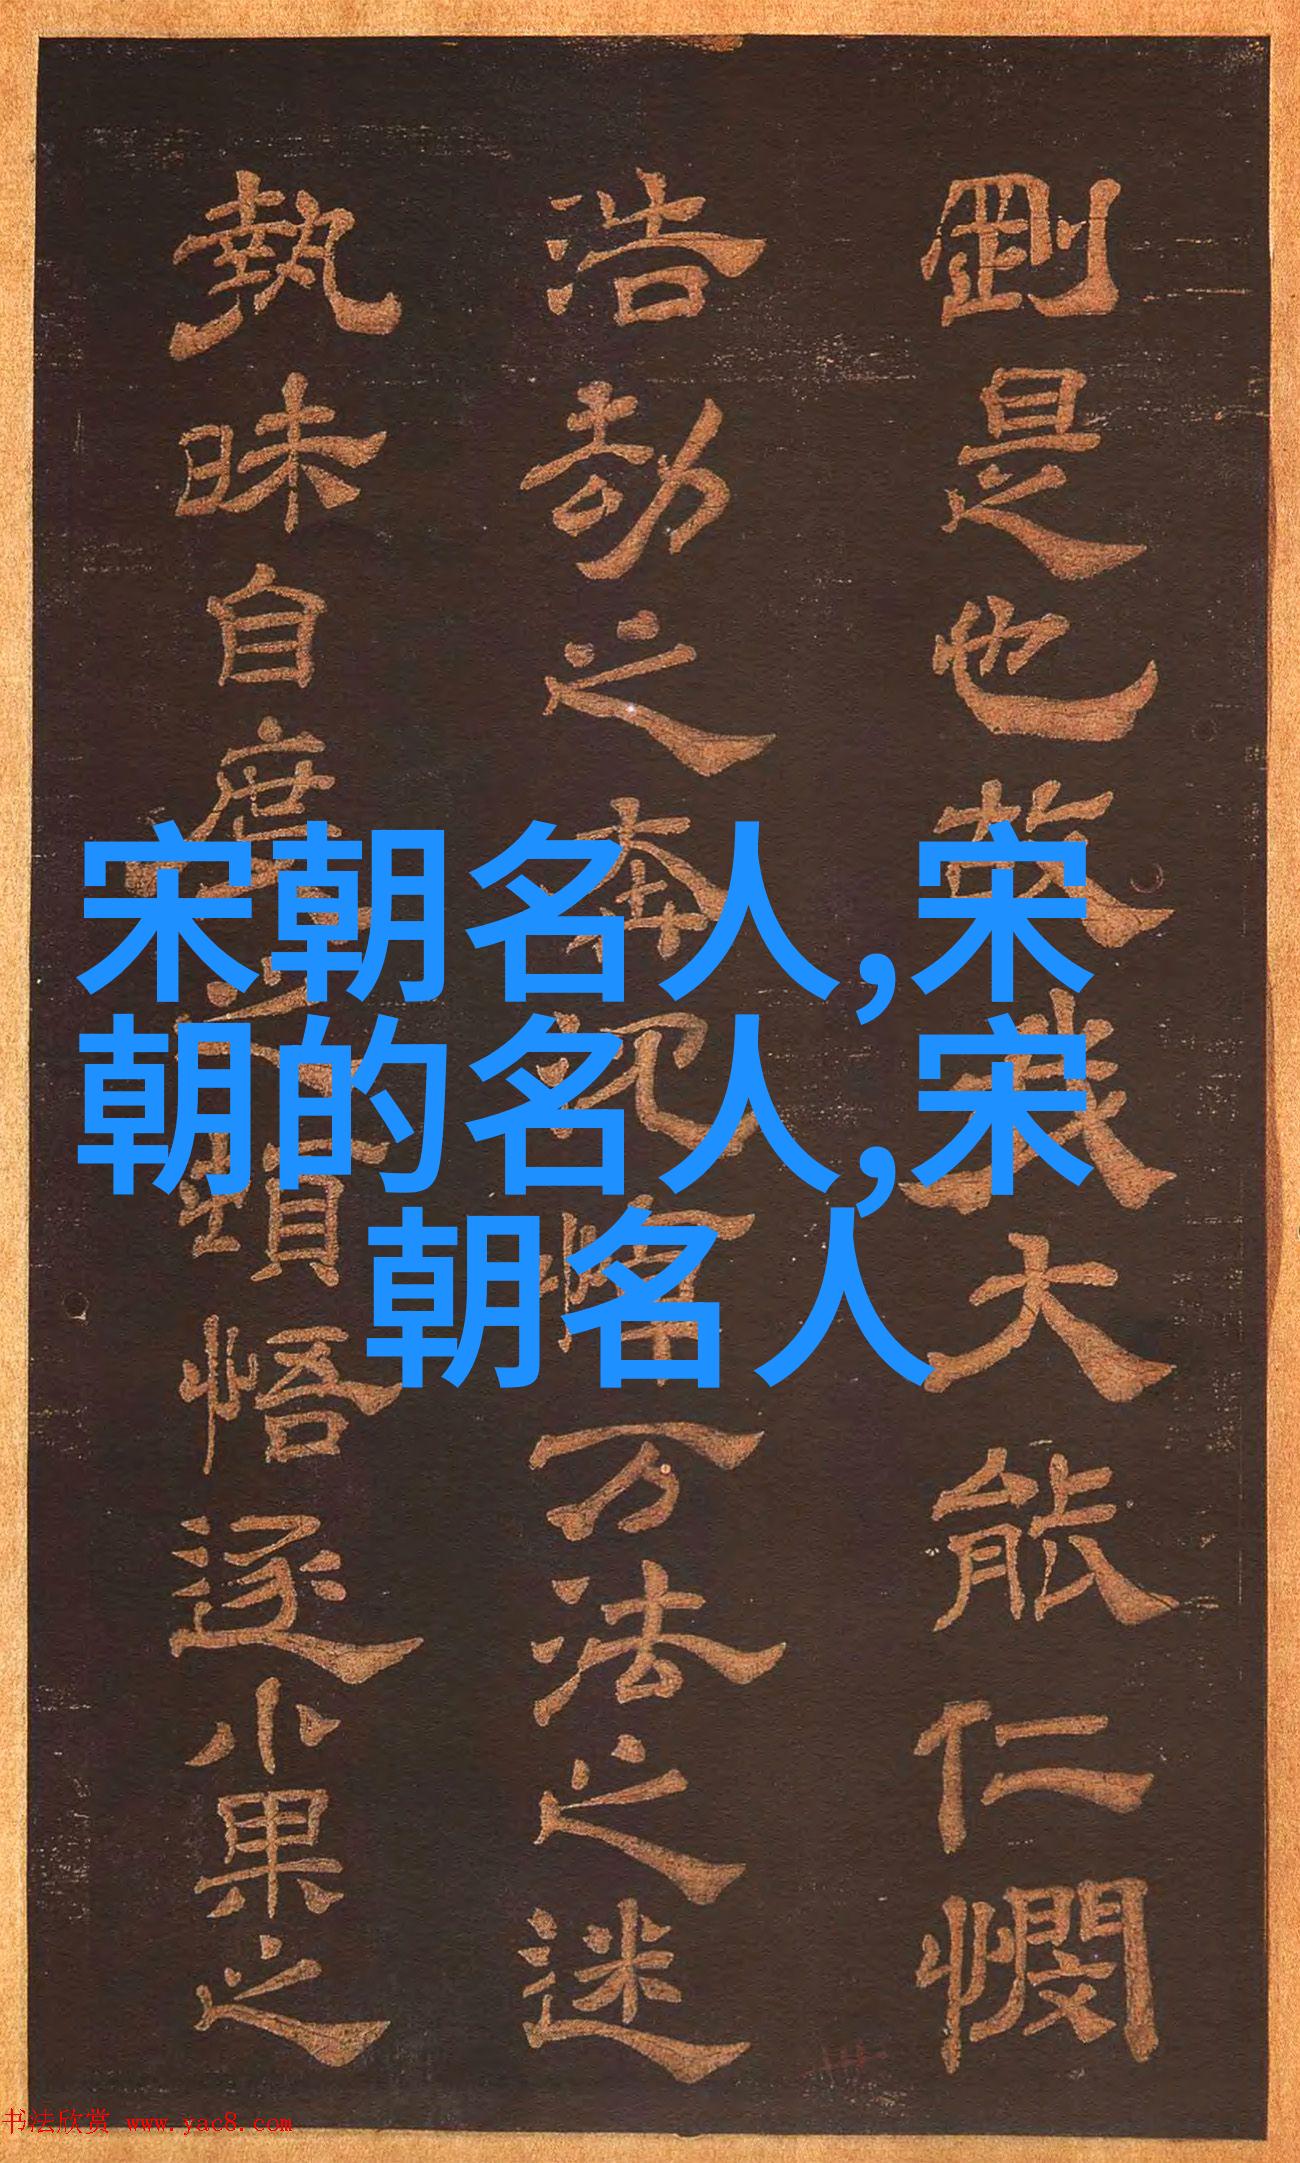 剛是也故我大能仁憫
浩劫之奔
万法之迷
執昧自度之
頓悟逐小果之
宋朝名人,宋
朝的名人,宋
朝名人
书法欣赏 www.yac8.com